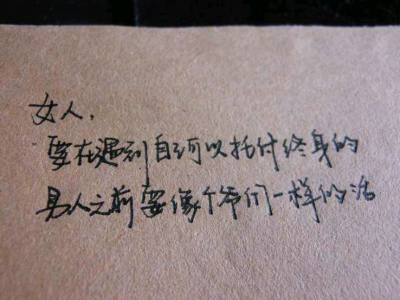 女人,
要在遇到自己可以托付终身的
男人之前要像个爷们一样的活